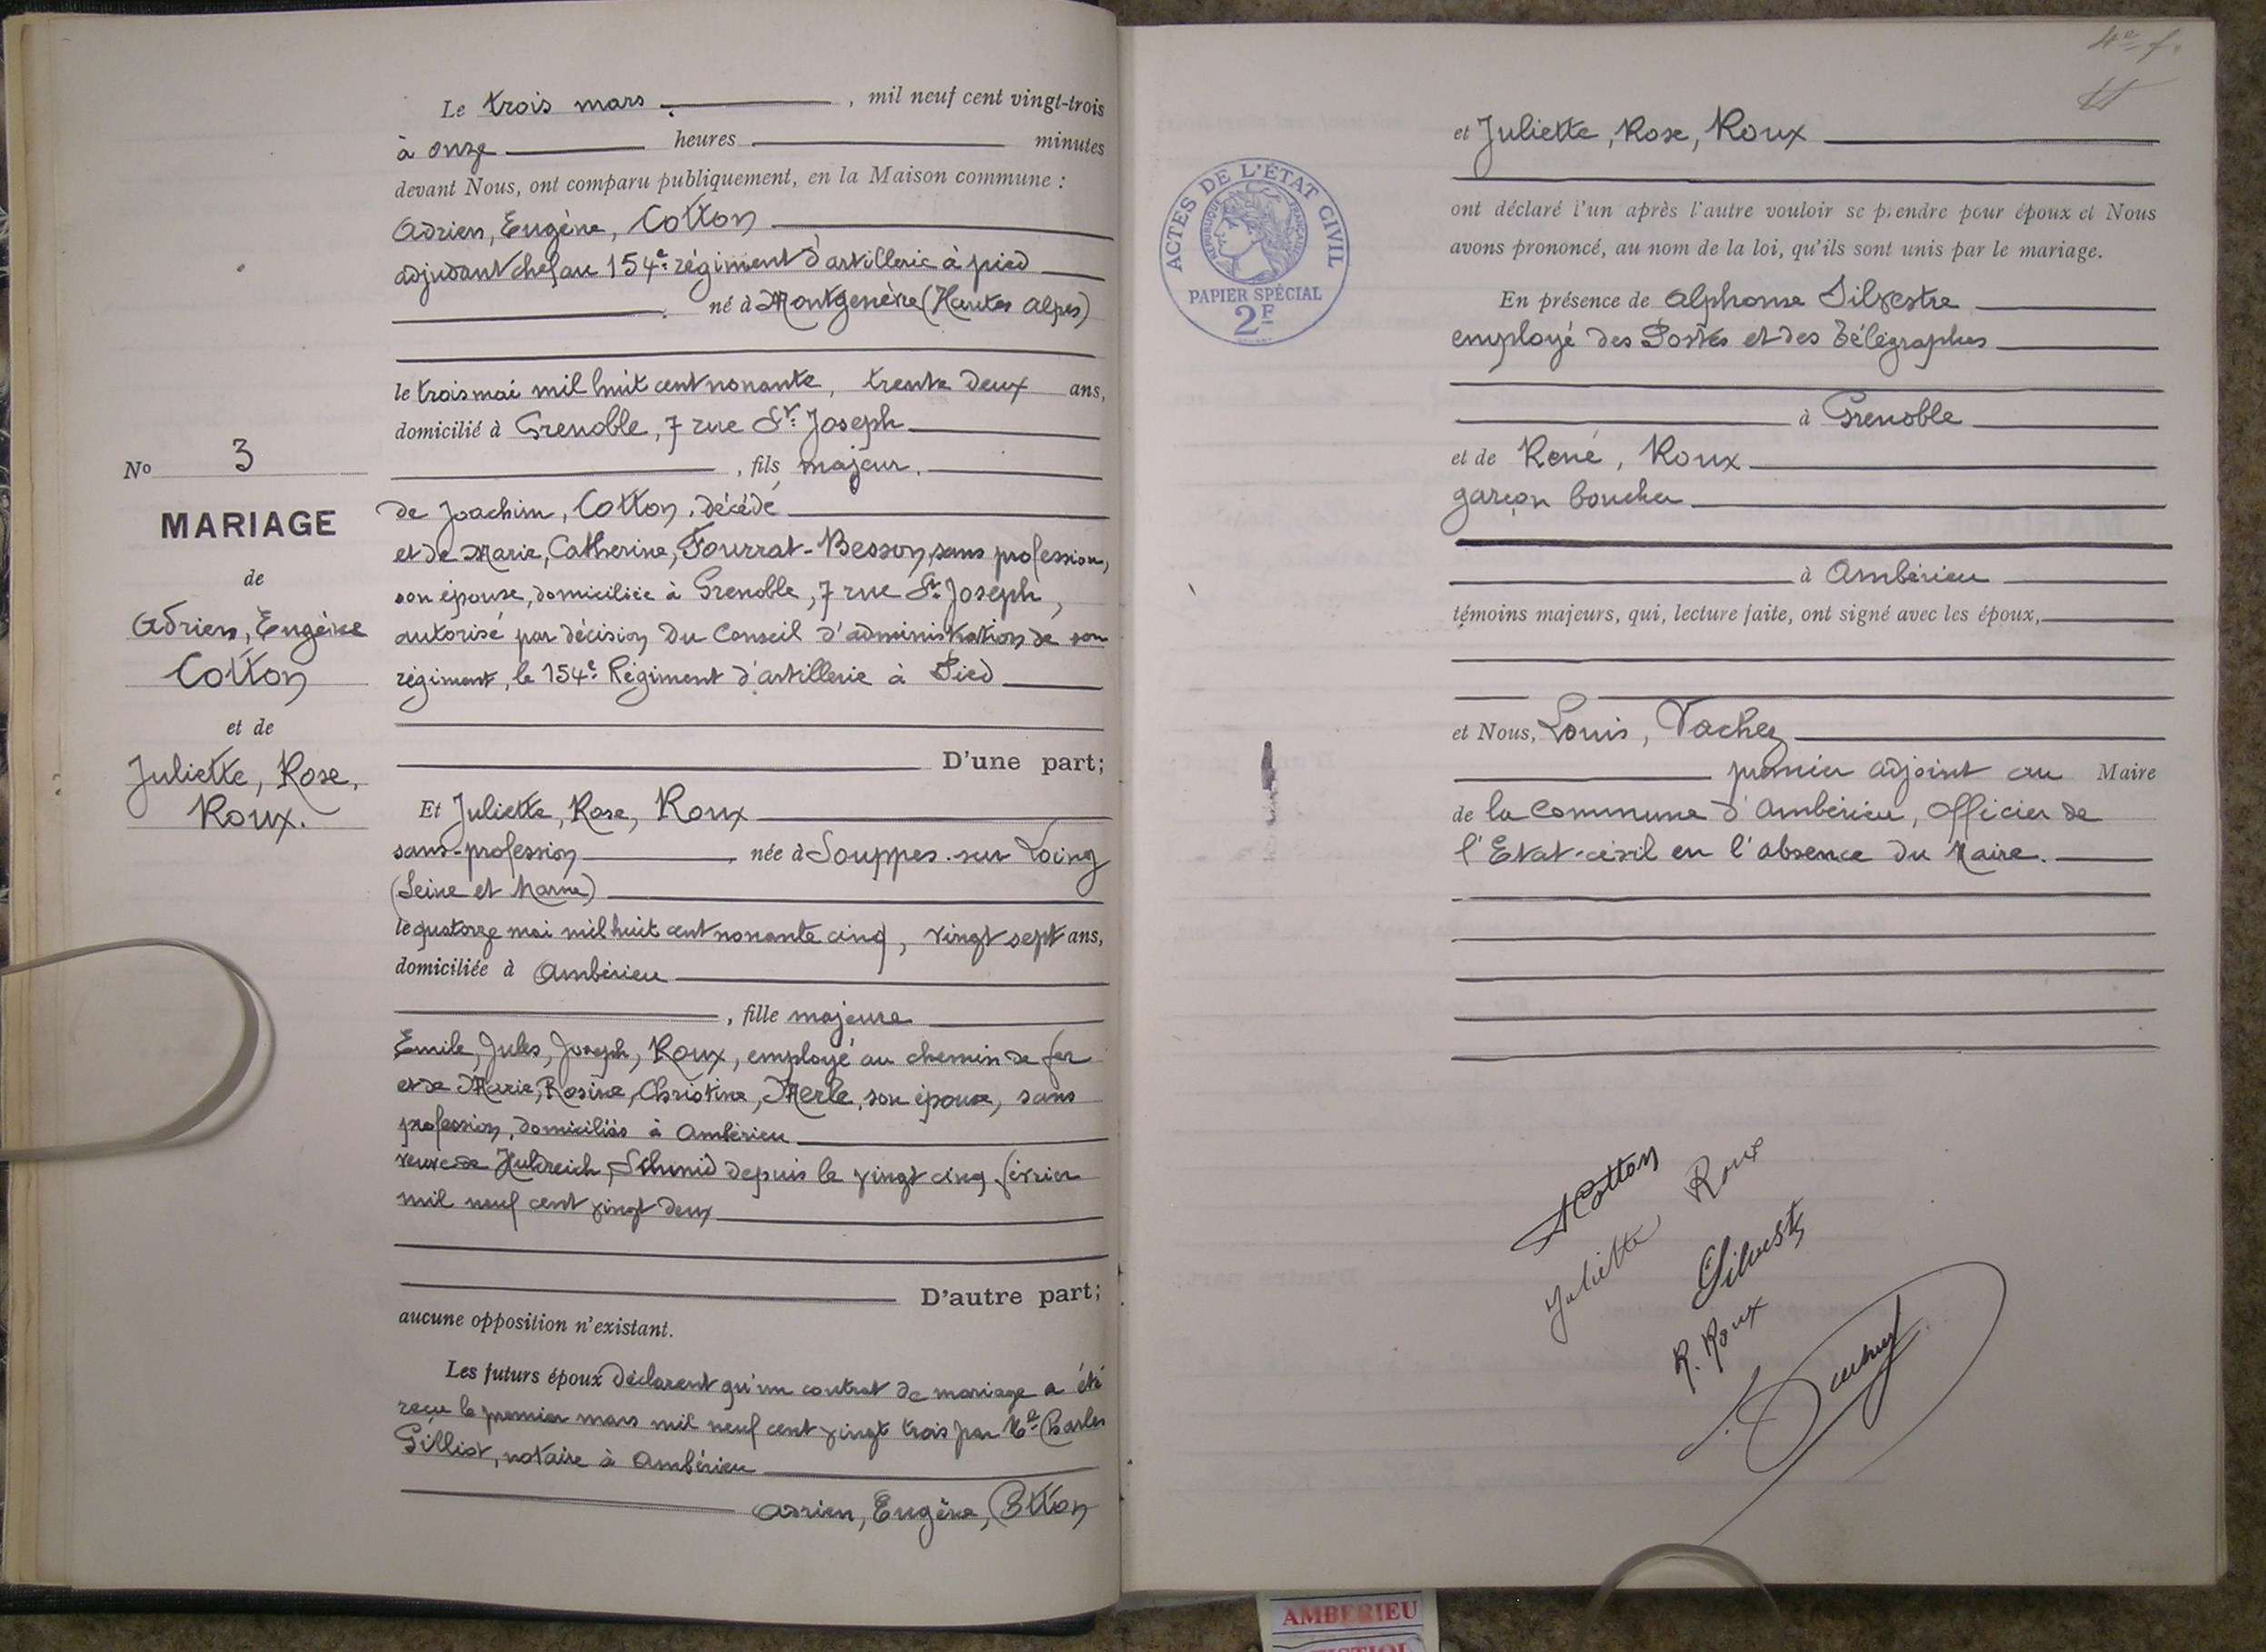 Le trois mars, mil neuf cent vingt-trois
à onze heures minutes
devant Nous, ont comparu publiquement, en la Maison commune :
Adrien, Eugène, Cotton
adjudant chef au 154e régiment d'artillerie à pied
né à Montgenèvre (Hautes Alpes)
le trois mai mil huit cent nonante, trente deux ans,
domicilié à Grenoble, 7 rue St Joseph
, fils majeur.
de Joachim, Cotton, décédé
et de Marie, Catherine, Fourrat-Besson, sans profession,
son épouse, domiciliée à Grenoble, 7 rue St Joseph,
autorisé par décision du Conseil d'administration de son
régiment, le 154e Régiment d'artillerie à Pied
D'une part;
Et Juliette, Rose, Roux
sans profession née à Souppes-sur Loing
(Seine et Marne)
le quatorze mai mil huit cent nonante cinq, vingt sept ans,
domiciliée à Ambérieu
, fille majeure
Emile, Jules, Joseph, Roux, employé au chemin de fer
et de Marie, Rosine, Christine, Merle, son épouse, sans
profession, domiciliés à Ambérieu
veuve de Huldreich, Schmid depuis le vingt cinq février
mil neuf cent vingt deux
D'autre part;
aucune opposition n'existant.
Les futurs époux déclarent qu'un contrat de mariage a été
reçu le premier mars mil neuf cent vingt trois par Me Charles
Gilliot, notaire à Ambérieu
Adrien, Eugène, Cotton
No 3
MARIAGE
de
Adrien, Eugène
Cotton
et de
Juliette, Rose,
Roux.
4e f.
et Juliette, Rose, Roux
ont déclaré l'un après l'autre vouloir se prendre pour époux et Nous
avons prononcé, au nom de la loi, qu'ils sont unis par le mariage.
En présence de Alphonse Silvestre
employé des Postes et des Télégraphes
à Grenoble
et de René, Roux
garçon boucher
à Ambérieu
témoins majeurs, qui, lecture faite, ont signé avec les époux,
et Nous, Louis, Vachez
premier adjoint au Maire
de la Commune d'Ambérieu, Officier de
l'Etat-civil en l'absence du Maire.
ACTES DE L'ÉTAT CIVIL
RÉPUBLIQUE FRANÇAISE
PAPIER SPÉCIAL
2F
A Cotton
Juliette Roux
Silvestre
R. Roux
AMBERIEU